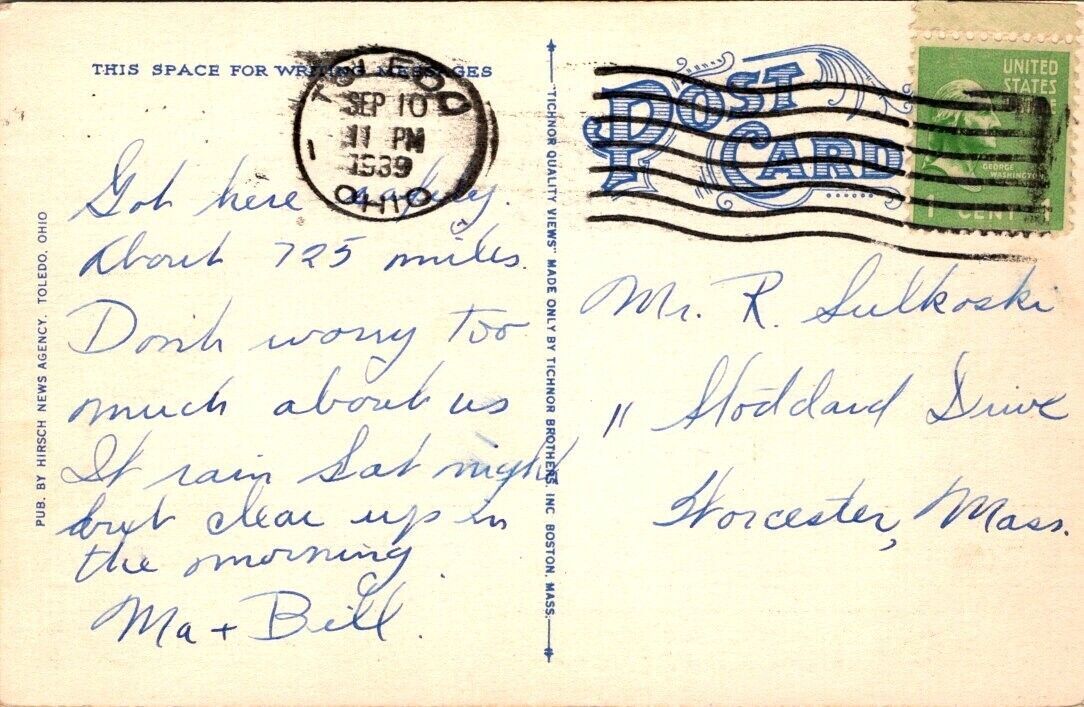 THIS SPACE FOR WRITING MESSAGES
TOLEDO
SEP 10
11 PM
1939
OHIO
1
Got here safely.
About 725 miles.
Don't worry too
much about us
It rain Sat night
but clear up in
the morning
Ma + Bill.
PUB. BY HIRSCH NEWS AGENCY, TOLEDO, OHIO
"TICHNOR QUALITY VIEWS" MADE ONLY BY TICHNOR BROTHERS, INC. BOSTON, MASS.
POST CARD
UNITED
STATES
GEORGE
WASHINGTON
1 CENT 1
Mr. R. Sulkoski
11 Stoddard Drive
Worcester, Mass.